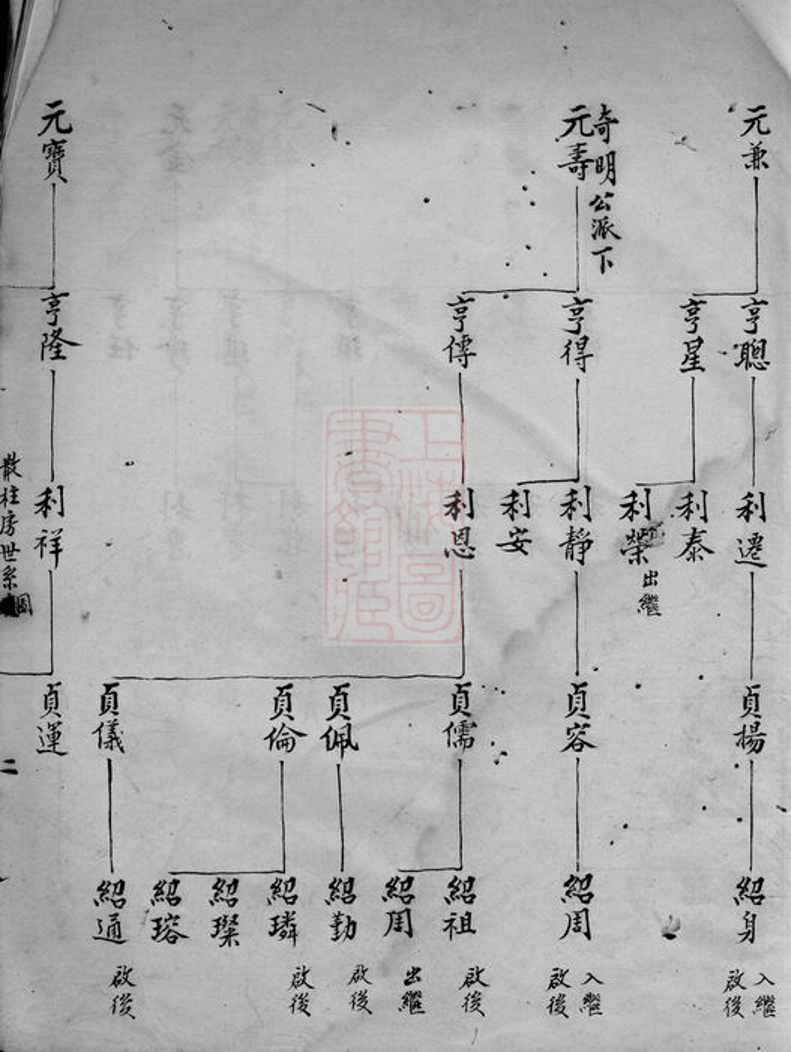 元兼
奇明公派下
元壽
元寶
亨聰
亨星
亨得
亨傳
亨隆
利遷
利泰
利榮 出繼
利靜
利安
利恩
利祥
貞楊
貞容
貞儒
貞佩
貞倫
貞儀
貞運
紹身 入繼 啟後
紹周 入繼 啟後
紹祖 啟後
紹周 出繼
紹勤 啟後
紹璘 啟後
紹璨
紹瑢
紹通 啟後
散柱房世系圖
二
上海圖書館藏